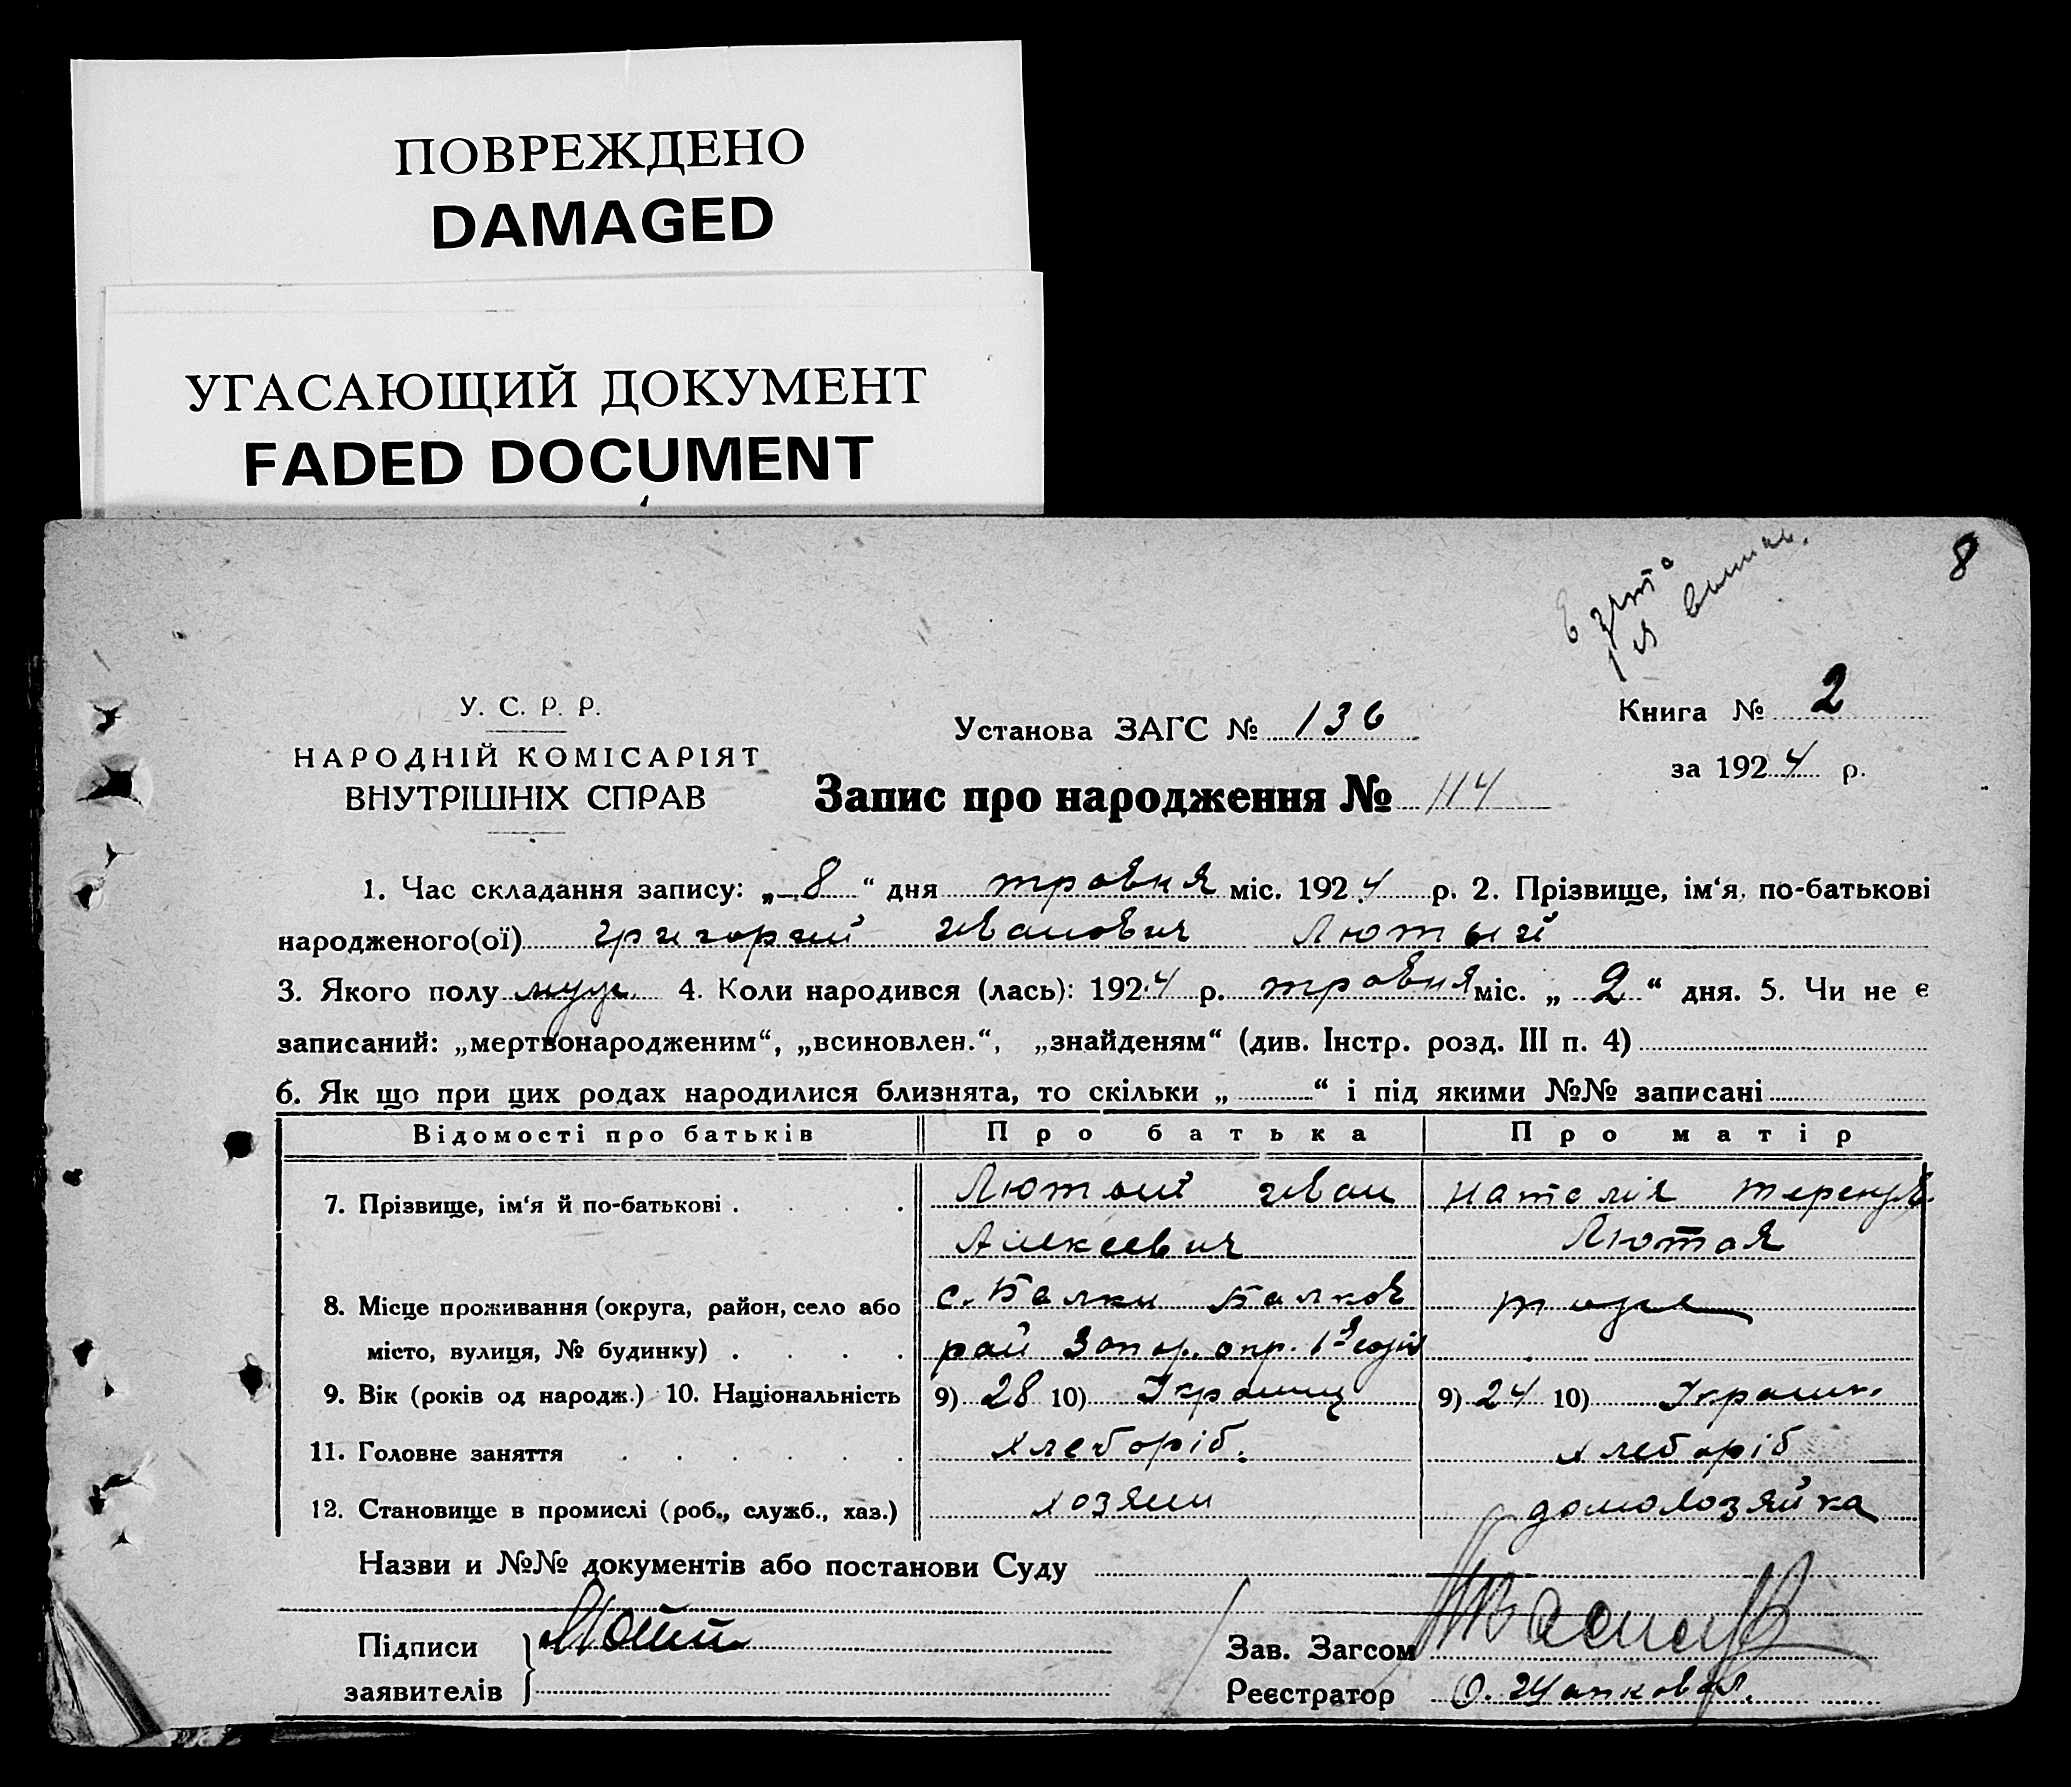 ПОВРЕЖДЕНО
DAMAGED
УГАСАЮЩИЙ ДОКУМЕНТ
FADED DOCUMENT
8
У. С. Р. Р.
НАРОДНІЙ КОМІСАРІЯТ
ВНУТРІШНІХ СПРАВ
Установа ЗАГС № 136
Книга № 2
за 1924 р.
Запис про народження № 114
1. Час складання запису: „ 8 “ дня травня міс. 1924 р. 2. Прізвище, ім‘я, по-батькові
народженого(ої) григорий иванович Лютый
3. Якого полу муж. 4. Коли народився (лась): 1924 р. травня міс. „ 2 “ дня. 5. Чи не є
записаний: „мертвонародженим“, „всиновлен.“, „знайденям“ (див. Інстр. розд. III п. 4)
6. Як що при цих родах народилися близнята, то скільки „ “ і під якими №№ записані
Відомості про батьків Про батька Про матір
7. Прізвище, ім‘я й по-батькові . Лютый иван Наталія
Алексеевич Лютая
8. Місце проживання (округа, район, село або с. Балки Балков тоже
місто, вулиця, № будинку) . рай Запор. окр.
9. Вік (років од народж.) 10. Національність 9) 28 10) Украинц 9) 24 10) Украин.
11. Головне заняття хлеборіб. хлеборіб
12. Становище в промислі (роб., служб., хаз.) хозяин домохозяйка
Назви и №№ документів або постанови Суду
Підписи
заявителів
Зав. Загсом
Реєстратор